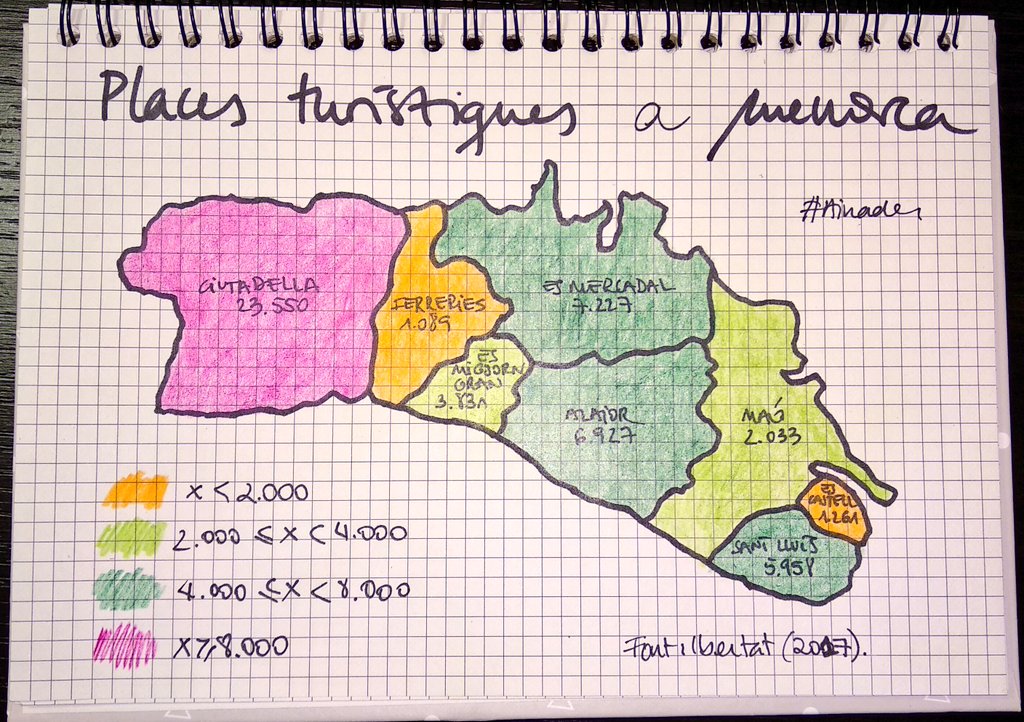 Places turístiques a menorca
#Ainades
CIUTADELLA
23.550
FERRERIES
1.089
ES MERCADAL
7.227
ES
MIGJORN
GRAN
3.831
ALAIOR
6.927
MAÓ
2.033
ES
CASTELL
1.261
SANT LLUÍS
5.958
x < 2.000
2.000 ≤ x < 4.000
4.000 ≤ x < 8.000
x ≥ 8.000
Font: ilbertat (2017).